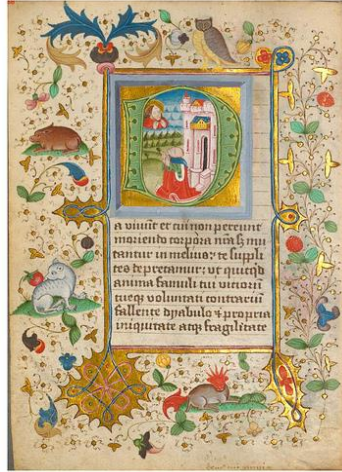 D
a viuūt et cui non pereunt
moriendo corpora nr̄a s; mu
tantur in melius: te suppli
ces deprecamur: ut quicqd
anima famuli tui vitiorū
tueq; voluntati contrariū
fallente dyabolo et propria
iniquitate atq; fragilitate